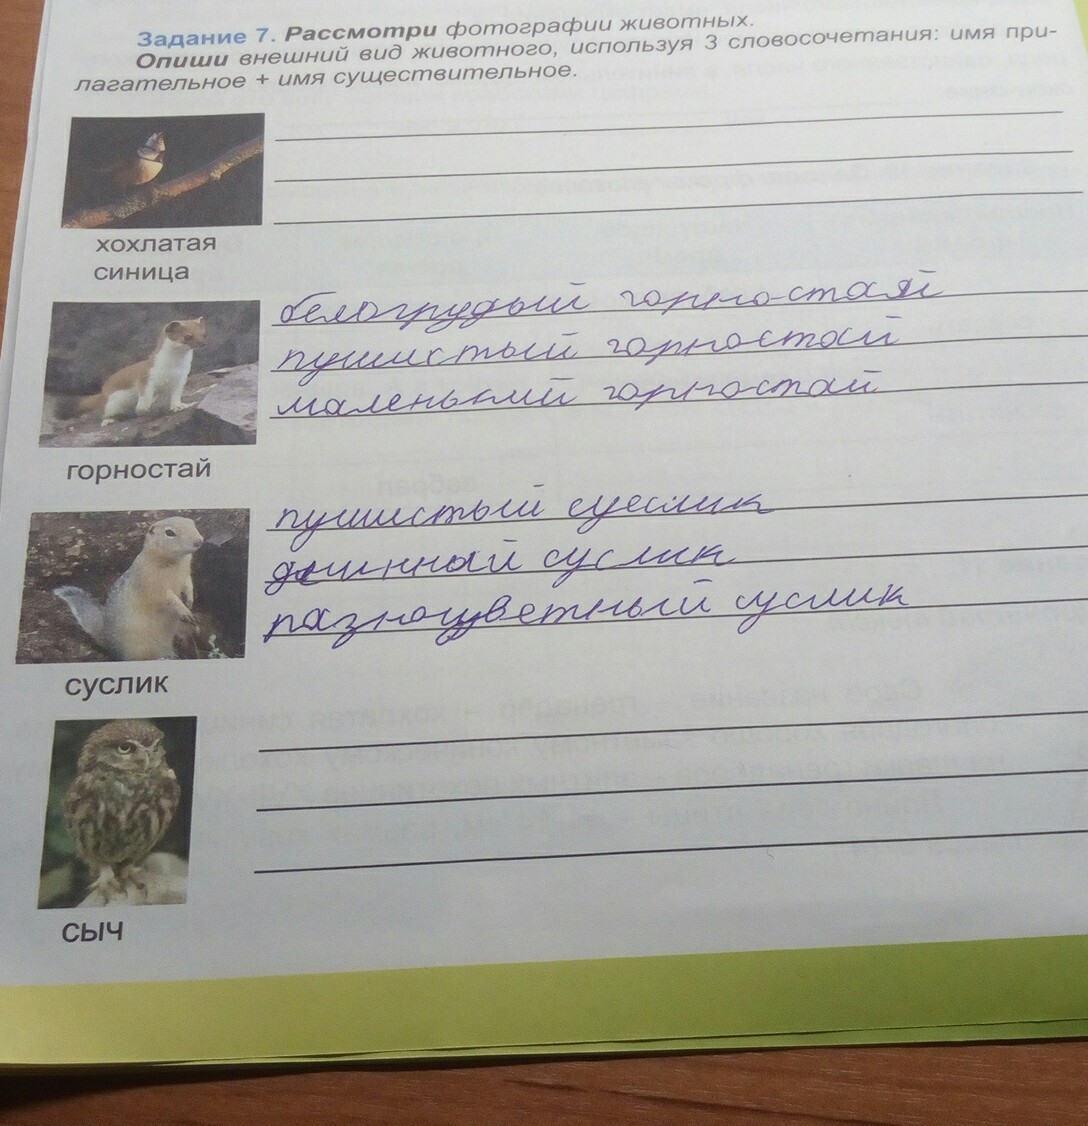 Задание 7. Рассмотри фотографии животных.
Опиши внешний вид животного, используя 3 словосочетания: имя при-
лагательное + имя существительное.
хохлатая
синица
белогрудый горностай
пушистый горностай
маленький горностай
горностай
пушистый суслик
длинный суслик
разноцветный суслик
суслик
сыч